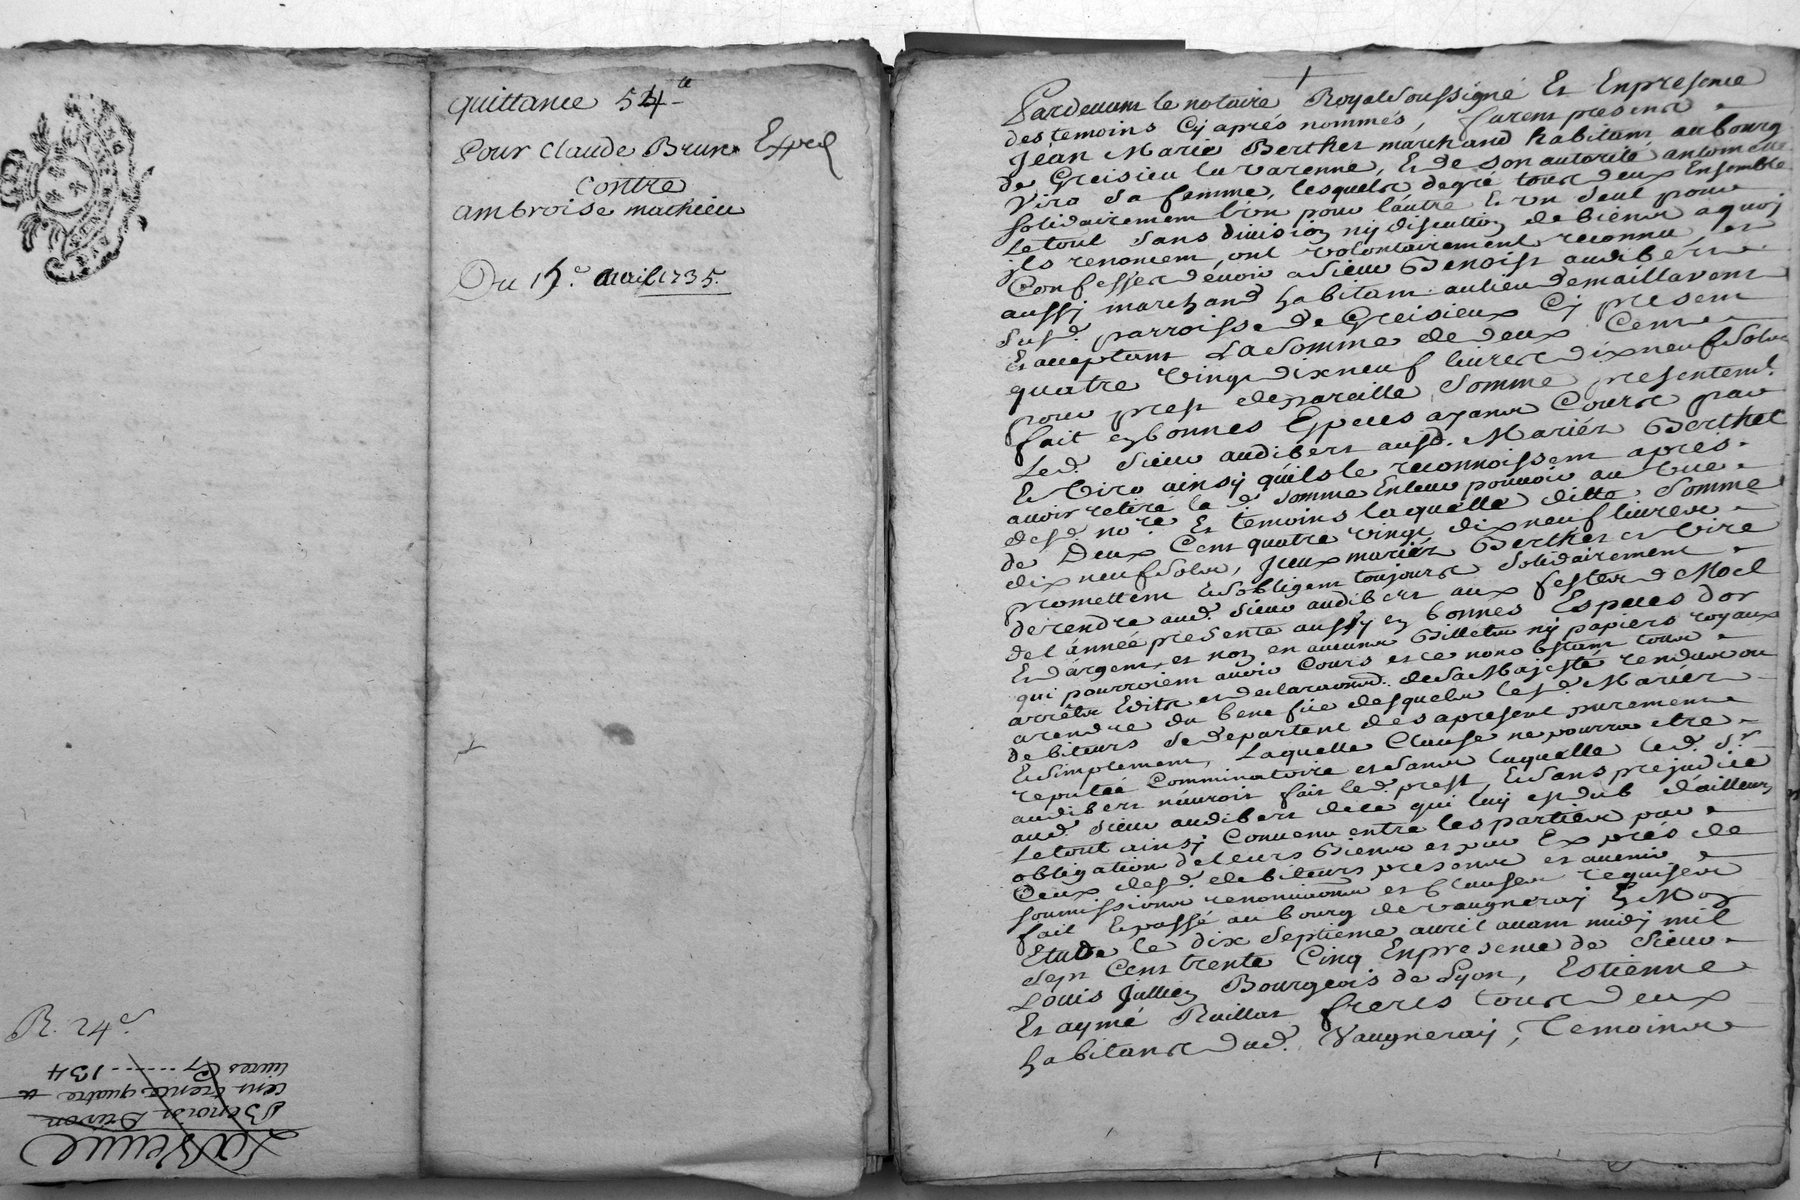 quittance 54 #
Pour Claude Brun Exped
Contre
ambroise mathieu
Du 15e. avril 1735.
R. 24 s.
La Veuve
Benoist Drivon
cent trente quatre #
livres Cy ...... 134
Pardevant le notaire Royal soussigné Et Enpresence
des temoins Cy aprés nommés, furent presents
Jean Marie Berthet marchand habitant au bourg
de Greisieu la varenne, Et de son autorité antoinette
Viro sa femme, lesquels de gré tous deux Ensemble
solidairement l'un pour l'autre Et un seul pour
Le tout sans division ny discution de biens a quoi
ils renoncent, ont volontairement reconnu et
Confessé devoir a sieur Benoist audibert
aussy marchand habitant au lieu de maillavent
susd. parroisse de Greisieux Cy present
Et acceptant La somme de deux Cents
quatre vingt dixneuf livres dixneuf sols
pour prest de pareille somme presentemt.
fait en bonnes Especes ayant Cours par
Led. sieur audibert ausd. Mariés Berthet
Et Viro ainsy qu'ils le reconnoissent aprés
avoir retiré lad. somme En leur pouvoir au vue
desd. nore. Et temoins laquelle ditte somme
de Deux Cent quatre vingt dixneuf livres
dix neuf sols, jceux mariés Berthet et Viro
promettent Et s'obligent toujours solidairement
de rendre aud. sieur audibert aux festes de Noel
de l'année presente aussy en bonnes Especes d'or
Et d'argent, et non en aucuns Billets ny papiers royaux
qui pourroient avoir Cours et ce nonobstant tous
arrêts Edits et declarations de Sa Majesté rendus ou
a rendre du benefice desquels lesd. Mariés
debiteurs se departent des apresent purement
Et simplement, Laquelle Clause ne pourra etre
reputée Comminatoire et sans laquelle led. sr.
audibert n'auroit fait led. prest, Et sans prejudice
aud. sieur audibert de ce qui luy est dub d'ailleurs
Le tout ainsy Convenu entre les parties par
obligation de leurs Biens et par Exprés de
Ceux desd. debiteurs presents et avenir
soumissions renonciations et Clauses requises
fait Et passé au bourg de vaugneray En Mon
Etude le dix septieme avril avant midy mil
sept Cent trente Cinq Enpresence de sieur
Louis Jullien Bourgeois de Lyon, Estienne
Et aymé Raillat freres tous deux
habitants dud. Vaugneray, Temoins